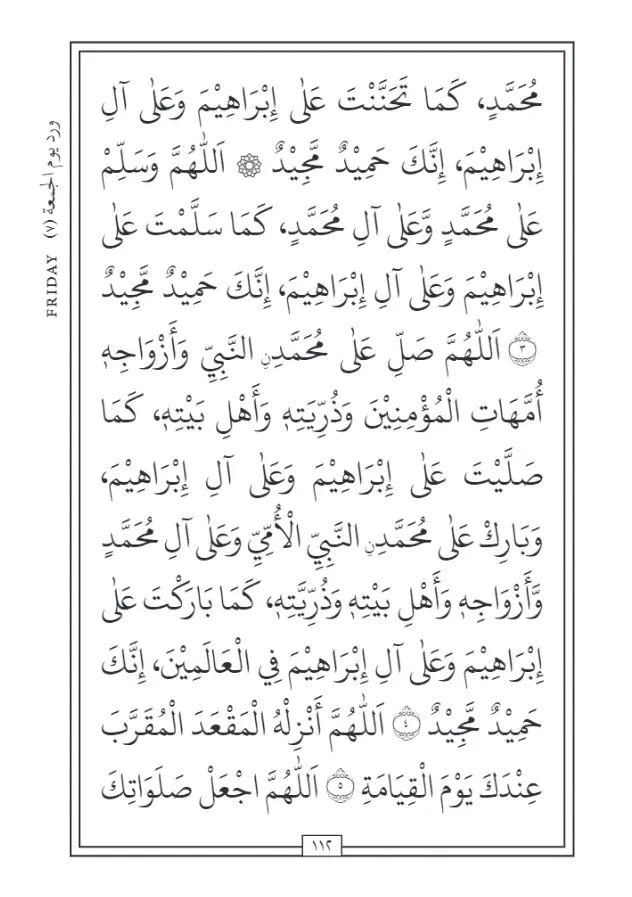 مُحَمَّدٍ، كَمَا تَحَنَّنْتَ عَلٰى إِبْرَاهِيْمَ وَعَلٰى آلِ
إِبْرَاهِيْمَ، إِنَّكَ حَمِيْدٌ مَّجِيْدٌ ۞ اَللّٰهُمَّ وَسَلِّمْ
عَلٰى مُحَمَّدٍ وَّعَلٰى آلِ مُحَمَّدٍ، كَمَا سَلَّمْتَ عَلٰى
إِبْرَاهِيْمَ وَعَلٰى آلِ إِبْرَاهِيْمَ، إِنَّكَ حَمِيْدٌ مَّجِيْدٌ
٣ اَللّٰهُمَّ صَلِّ عَلٰى مُحَمَّدِنِ النَّبِيِّ وَأَزْوَاجِهٖ
أُمَّهَاتِ الْمُؤْمِنِيْنَ وَذُرِّيَتِهٖ وَأَهْلِ بَيْتِهٖ، كَمَا
صَلَّيْتَ عَلٰى إِبْرَاهِيْمَ وَعَلٰى آلِ إِبْرَاهِيْمَ،
وَبَارِكْ عَلٰى مُحَمَّدِنِ النَّبِيِّ الْأُمِّيِّ وَعَلٰى آلِ مُحَمَّدٍ
وَّأَزْوَاجِهٖ وَأَهْلِ بَيْتِهٖ وَذُرِّيَّتِهٖ، كَمَا بَارَكْتَ عَلٰى
إِبْرَاهِيْمَ وَعَلٰى آلِ إِبْرَاهِيْمَ فِي الْعَالَمِيْنَ، إِنَّكَ
حَمِيْدٌ مَّجِيْدٌ ٤ اَللّٰهُمَّ أَنْزِلْهُ الْمَقْعَدَ الْمُقَرَّبَ
عِنْدَكَ يَوْمَ الْقِيَامَةِ ٥ اَللّٰهُمَّ اجْعَلْ صَلَوَاتِكَ
١١٢
ورد يوم الجمعة (٧)
FRIDAY